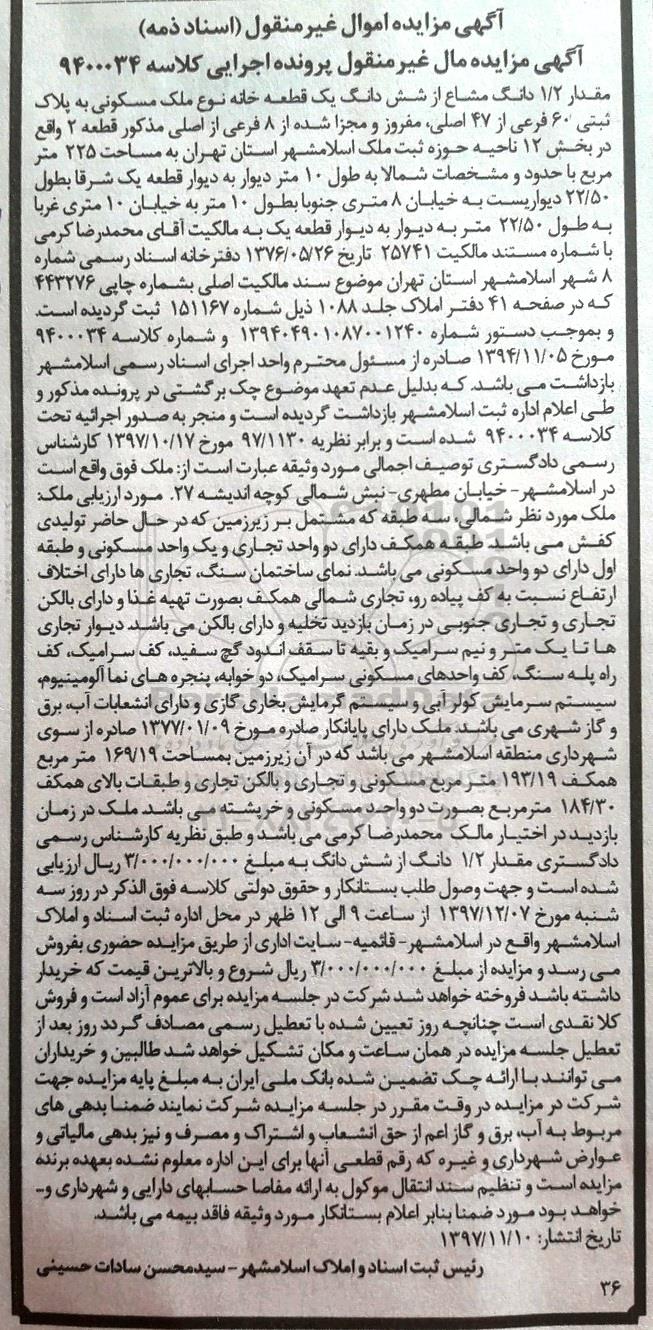 آگهی مزایده اموال غیرمنقول (اسناد ذمه)
آگهی مزایده مال غیرمنقول پرونده اجرایی کلاسه ۹۴۰۰۰۳۴
مقدار ۱/۲ دانگ مشاع از شش دانگ یک قطعه خانه نوع ملک مسکونی به پلاک
ثبتی ۶۰ فرعی از ۴۷ اصلی، مفروز و مجزا شده از ۸ فرعی از اصلی مذکور قطعه ۲ واقع
در بخش ۱۲ ناحیه حوزه ثبت ملک اسلامشهر استان تهران به مساحت ۲۲۵ متر
مربع با حدود و مشخصات شمالا به طول ۱۰ متر دیوار به دیوار قطعه یک شرقا بطول
۲۲/۵۰ دیواریست به خیابان ۸ متری جنوبا بطول ۱۰ متر به خیابان ۱۰ متری غربا
به طول ۲۲/۵۰ متر به دیوار به دیوار قطعه یک به مالکیت آقای محمدرضا کرمی
با شماره مستند مالکیت ۲۵۷۴۱ تاریخ ۱۳۷۶/۰۵/۲۶ دفترخانه اسناد رسمی شماره
۸ شهر اسلامشهر استان تهران موضوع سند مالکیت اصلی بشماره چاپی ۴۴۳۲۷۶
که در صفحه ۴۱ دفتر املاک جلد ۱۰۸۸ ذیل شماره ۱۵۱۱۶۷ ثبت گردیده است.
و بموجب دستور شماره ۱۳۹۴۰۴۹۰۱۰۸۷۰۰۱۲۴۰ و شماره کلاسه ۹۴۰۰۰۳۴
مورخ ۱۳۹۴/۱۱/۰۵ صادره از مسئول محترم واحد اجرای اسناد رسمی اسلامشهر
بازداشت می باشد. که بدلیل عدم تعهد موضوع چک برگشتی در پرونده مذکور و
طی اعلام اداره ثبت اسلامشهر بازداشت گردیده است و منجر به صدور اجرائیه تحت
کلاسه ۹۴۰۰۰۳۴ شده است و برابر نظریه ۹۷/۱۱۳۰ مورخ ۱۳۹۷/۱۰/۱۷ کارشناس
رسمی دادگستری توصیف اجمالی مورد وثیقه عبارت است از: ملک فوق واقع است
در اسلامشهر- خیابان مطهری- نبش شمالی کوچه اندیشه ۲۷. مورد ارزیابی ملک:
ملک مورد نظر شمالی، سه طبقه که مشتمل بر زیرزمین که در حال حاضر تولیدی
کفش می باشد طبقه همکف دارای دو واحد تجاری و یک واحد مسکونی و طبقه
اول دارای دو واحد مسکونی می باشد. نمای ساختمان سنگ، تجاری ها دارای اختلاف
ارتفاع نسبت به کف پیاده رو، تجاری شمالی همکف بصورت تهیه غذا و دارای بالکن
تجاری و تجاری جنوبی در زمان بازدید تخلیه و دارای بالکن می باشد. دیوار تجاری
ها تا یک متر و نیم سرامیک و بقیه تا سقف اندود گچ سفید، کف سرامیک، کف
راه پله سنگ، کف واحدهای مسکونی سرامیک، دو خوابه، پنجره های نما آلومینیوم،
سیستم سرمایش کولر آبی و سیستم گرمایش بخاری گازی و دارای انشعابات آب، برق
و گاز شهری می باشد. ملک دارای پایانکار صادره مورخ ۱۳۷۷/۰۱/۰۹ صادره از سوی
شهرداری منطقه اسلامشهر می باشد که در آن زیرزمین بمساحت ۱۶۹/۱۹ متر مربع
همکف ۱۹۳/۱۹ متر مربع مسکونی و تجاری و بالکن تجاری و طبقات بالای همکف
۱۸۴/۳۰ مترمربع بصورت دو واحد مسکونی و خرپشته می باشد. ملک در زمان
بازدید در اختیار مالک محمدرضا کرمی می باشد و طبق نظریه کارشناس رسمی
دادگستری مقدار ۱/۲ دانگ از شش دانگ به مبلغ ۳/۰۰۰/۰۰۰/۰۰۰ ریال ارزیابی
شده است و جهت وصول طلب بستانکار و حقوق دولتی کلاسه فوق الذکر در روز سه
شنبه مورخ ۱۳۹۷/۱۲/۰۷ از ساعت ۹ الی ۱۲ ظهر در محل اداره ثبت اسناد و املاک
اسلامشهر واقع در اسلامشهر- قائمیه- سایت اداری از طریق مزایده حضوری بفروش
می رسد و مزایده از مبلغ ۳/۰۰۰/۰۰۰/۰۰۰ ریال شروع و بالاترین قیمت که خریدار
داشته باشد فروخته خواهد شد شرکت در جلسه مزایده برای عموم آزاد است و فروش
کلا نقدی است چنانچه روز تعیین شده با تعطیل رسمی مصادف گردد روز بعد از
تعطیل جلسه مزایده در همان ساعت و مکان تشکیل خواهد شد طالبین و خریداران
می توانند با ارائه چک تضمین شده بانک ملی ایران به مبلغ پایه مزایده جهت
شرکت در مزایده در وقت مقرر در جلسه مزایده شرکت نمایند ضمنا بدهی های
مربوط به آب، برق و گاز اعم از حق انشعاب و اشتراک و مصرف و نیز بدهی مالیاتی و
عوارض شهرداری و غیره که رقم قطعی آنها برای این اداره معلوم نشده بعهده برنده
مزایده است و تنظیم سند انتقال موکول به ارائه مفاصا حسابهای دارایی و شهرداری و-
خواهد بود مورد ضمنا بنابر اعلام بستانکار مورد وثیقه فاقد بیمه می باشد.
تاریخ انتشار: ۱۳۹۷/۱۱/۱۰
رئیس ثبت اسناد و املاک اسلامشهر- سیدمحسن سادات حسینی
۳۶